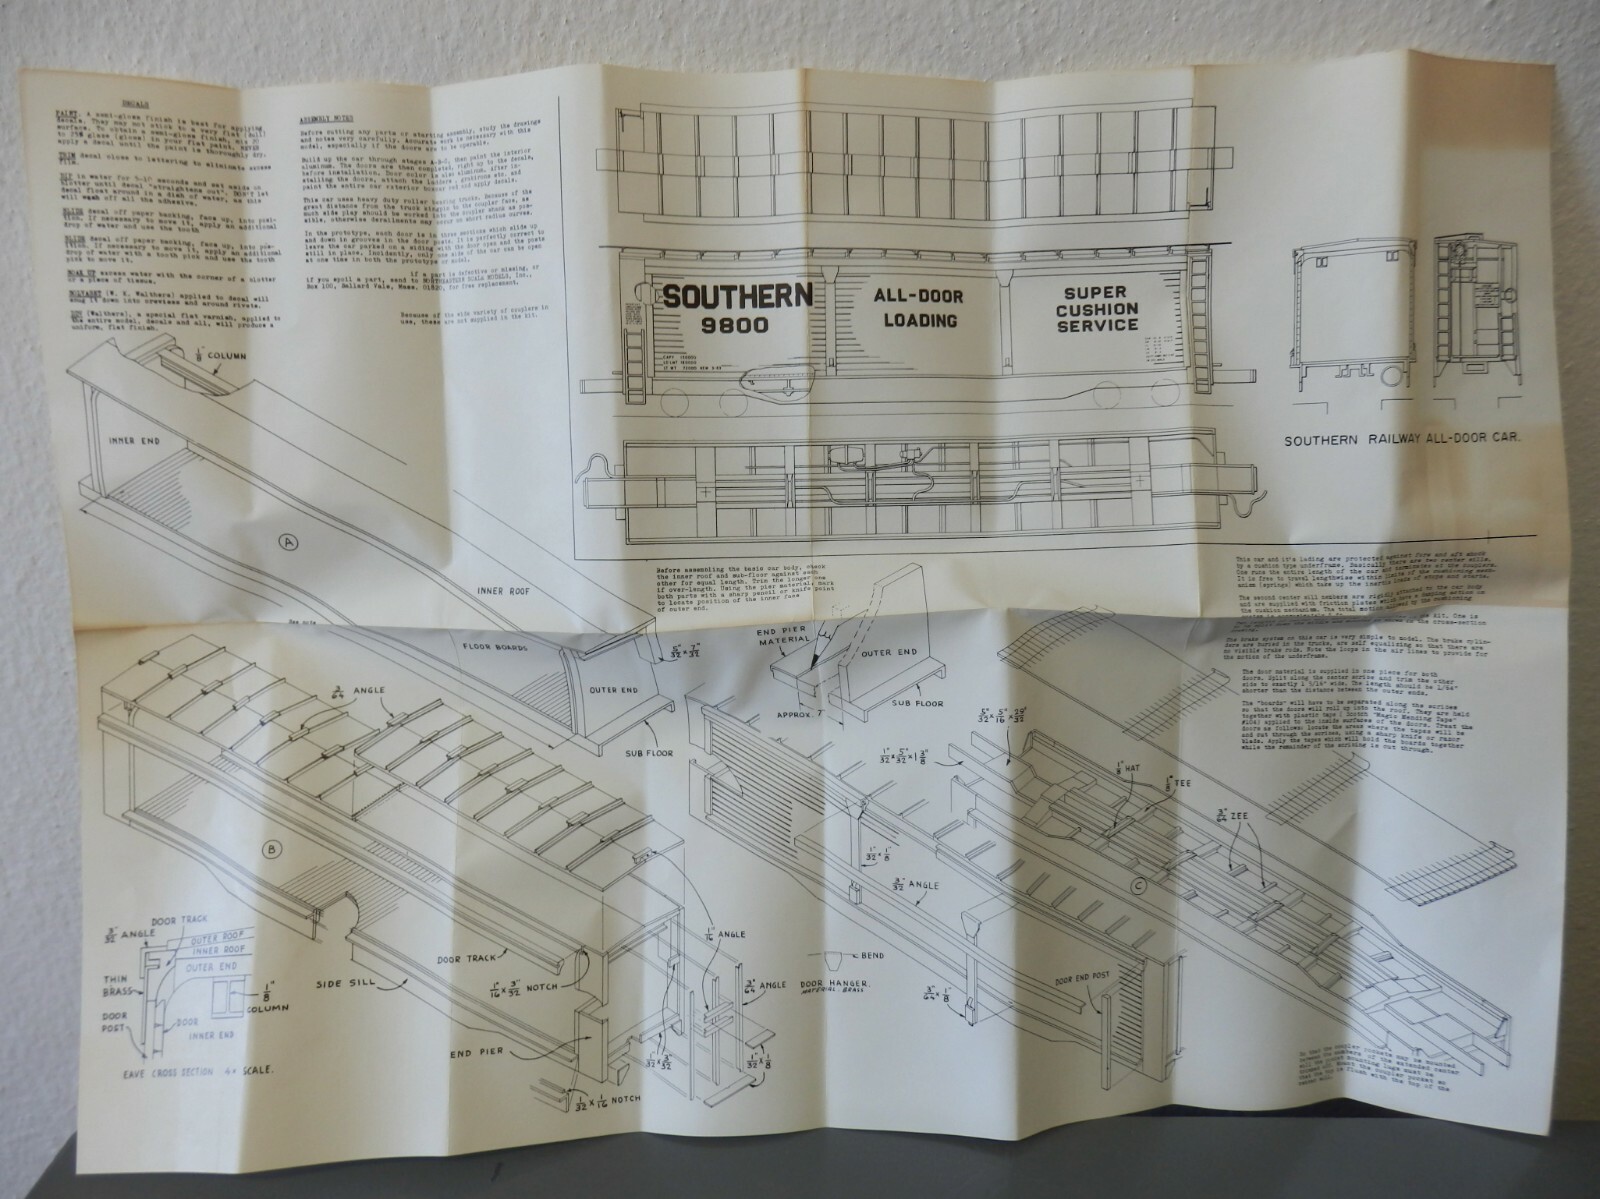 DECALS
PAINT. A semi-gloss finish is best for applying
decals. They may not stick to a very flat (dull)
surface. To obtain a semi-gloss finish, mix
to 75% glaze (gloss) in your flat paint. NEVER
apply a decal until the paint is thoroughly dry.
TRIM decal close to lettering to eliminate excess
film.
DIP in water for 5-10 seconds and set aside on
blotter until decal "straightens out". DON'T let
decal float around in a dish of water, as this
will wash off all the adhesive.
SLIDE decal off paper backing, face up, into posi-
tion. If necessary to move it, apply an additional
drop of water and use the tooth
SLIDE decal off paper backing, face up, into pos-
ition. If necessary to move it, apply an additional
drop of water with a tooth pick and use the tooth
pick to move it.
SOAK UP excess water with the corner of a blotter
or a piece of tissue.
SOLVASET (W. K. Walthers) applied to decal will
snug it down into crevices and around rivets.
(Walthers), a special flat varnish, applied to
the entire model, decals and all, will produce a
uniform, flat finish.
ASSEMBLY NOTES
Before cutting any parts or starting assembly, study the drawings
and notes very carefully. Accurate work is necessary with this
model, especially if the doors are to be operable.
Build up the car through stages A-B-C, then paint the interior
aluminum. The doors are then completed, right up to the decals,
before installation. Door color is also aluminum. After in-
stalling the doors, attach the ladders, grabirons etc. and
paint the entire car exterior boxcar red and apply decals.
This car uses heavy duty roller bearing trucks. Because of the
great distance from the truck kingpin to the coupler face, as
much side play should be worked into the coupler shank as pos-
sible, otherwise derailments may occur on short radius curves.
In the prototype, each door is in three sections which slide up
and down in grooves in the door posts. It is perfectly correct to
leave the car parked on a siding with the door open and the posts
still in place. Incidently, only one side of the car can be open
at one time in both the prototype or model.
if a part is defective or missing, or
if you spoil a part, send to NORTHEASTERN SCALE MODELS, Inc.,
Box 100, Ballard Vale, Mass. 01820, for free replacement.
Because of the wide variety of couplers in
use, these are not supplied in the kit.
SOUTHERN
9800
ALL-DOOR
LOADING
SUPER
CUSHION
SERVICE
SOUTHERN RAILWAY ALL-DOOR CAR.
1/8" COLUMN
INNER END
A
INNER ROOF
FLOOR BOARDS
5/32" x 7/32"
OUTER END
SUB FLOOR
Before assembling the basic car body, check
the inner roof and sub-floor against each
other for equal length. Trim the longer one
if over-length. Using the pier material, mark
both parts with a sharp pencil or knife point
to locate position of the inner face
of outer end.
END PIER
MATERIAL
OUTER END
SUB FLOOR
APPROX. 7"
This car and it's lading are protected against fore and aft shock
by a cushion type underframe. Basically there are two center sills.
One runs the entire length of the car and terminates at the couplers.
It is free to travel lengthwise within
The second center sill members are rigidly attached to the car body
and are supplied with friction plates
the cushion mechanism. The total motion
The brake system on this car is very simple to model. The brake cylin-
ders are nurved in the trucks, are self equalizing so that there are
no visible brake rods. Note the loops in the air lines to provide for
the motion of the underframe.
The door material is supplied in one piece for both
doors. Split along the center scribe and trim the other
side to exactly 1 5/16" wide. The length should be 1/64"
shorter than the distance between the outer ends.
The "boards" will have to be separated along the scribes
so that the doors will roll up into the roof. They are held
together with plastic tape ( Scotch "Magic Mending Tape"
#104) applied to the inside surfaces of the doors. Treat the
doors as follows: locate the areas where the tapes will be
and cut through the scribes, using a sharp knife or razor
blade. Apply the tapes which will hold the boards together
while the remainder of the scribing is cut through.
3/64 ANGLE
B
DOOR TRACK
3/32" ANGLE
OUTER ROOF
INNER ROOF
OUTER END
THIN
BRASS
1/8"
COLUMN
DOOR
POST
DOOR
INNER END
EAVE CROSS SECTION 4x SCALE.
SIDE SILL
DOOR TRACK
1/16" x 3/32" NOTCH
END PIER
1/32 x 1/16 NOTCH
1/16" ANGLE
3/64" ANGLE
1/32" x 3/32"
1/32" x 1/8"
BEND
DOOR HANGER.
MATERIAL-BRASS
1/32" x 5/32" x 1 3/8"
5/32" x 5/16" x 29/32"
1/32" x 1/8"
3/32" ANGLE
3/64" x 1/8"
DOOR END POST
1/8" HAT
1/8" TEE
3/64" ZEE
C
So that the coupler pockets may be mounted
between the members of the extended center
sill the mounting lugs must be
trimmed off. Mount the coupler pocket so
that the top is flush with the top of the
center sill.